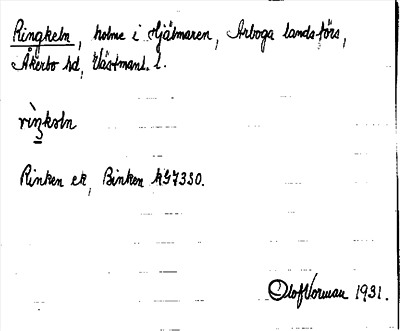 Ringkeln, holme i Hjälmaren, Arboga landsförs,
Åkerbo hd, Västmanl. l.
rìŋkəln
Rinken ek, Binken KG7330.
Olof Norman 1931.